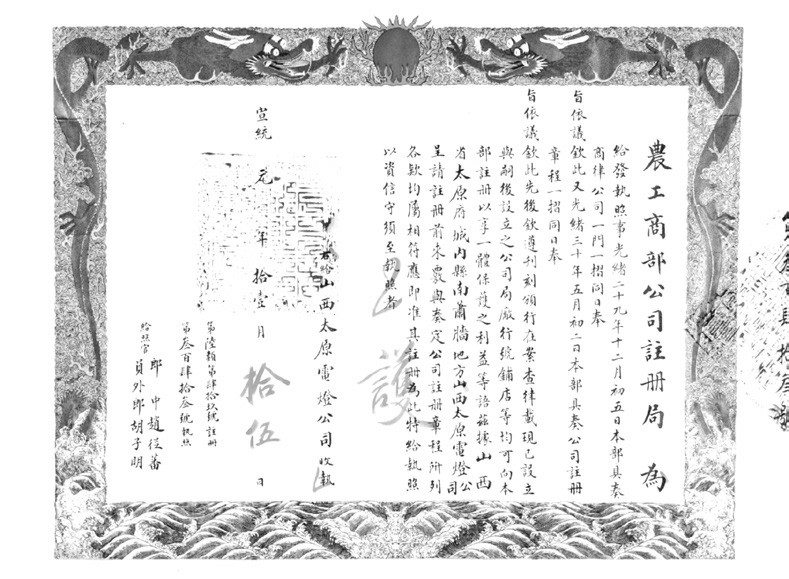 第叁百肆拾叁號
農工商部公司註冊局 為
給發執照事光緒二十九年十二月初五日本部具奏
商律公司一門一摺同日奉
旨依議欽此又光緒三十年五月初二日本部具奏公司註冊
章程一摺同日奉
旨依議欽此先後欽遵刊刻頒行在案查律載現已設立
與嗣後設立之公司局廠行號鋪店等均可向本
部註冊以享一體保護之利益等語茲據山西
省太原府城內縣南蕭牆地方山西太原電燈公司
呈請註冊前來覈與奏定公司註冊章程所列
各欵均屬相符應即准其註冊為此特給執照
以資信守須至執照者
護
右給山西太原電燈公司收執
宣統元年拾壹月拾伍日
第陸類第肆拾玖號註冊
第叁百肆拾叁號執照
給照官
郎中趙從蕃
員外郎胡子明